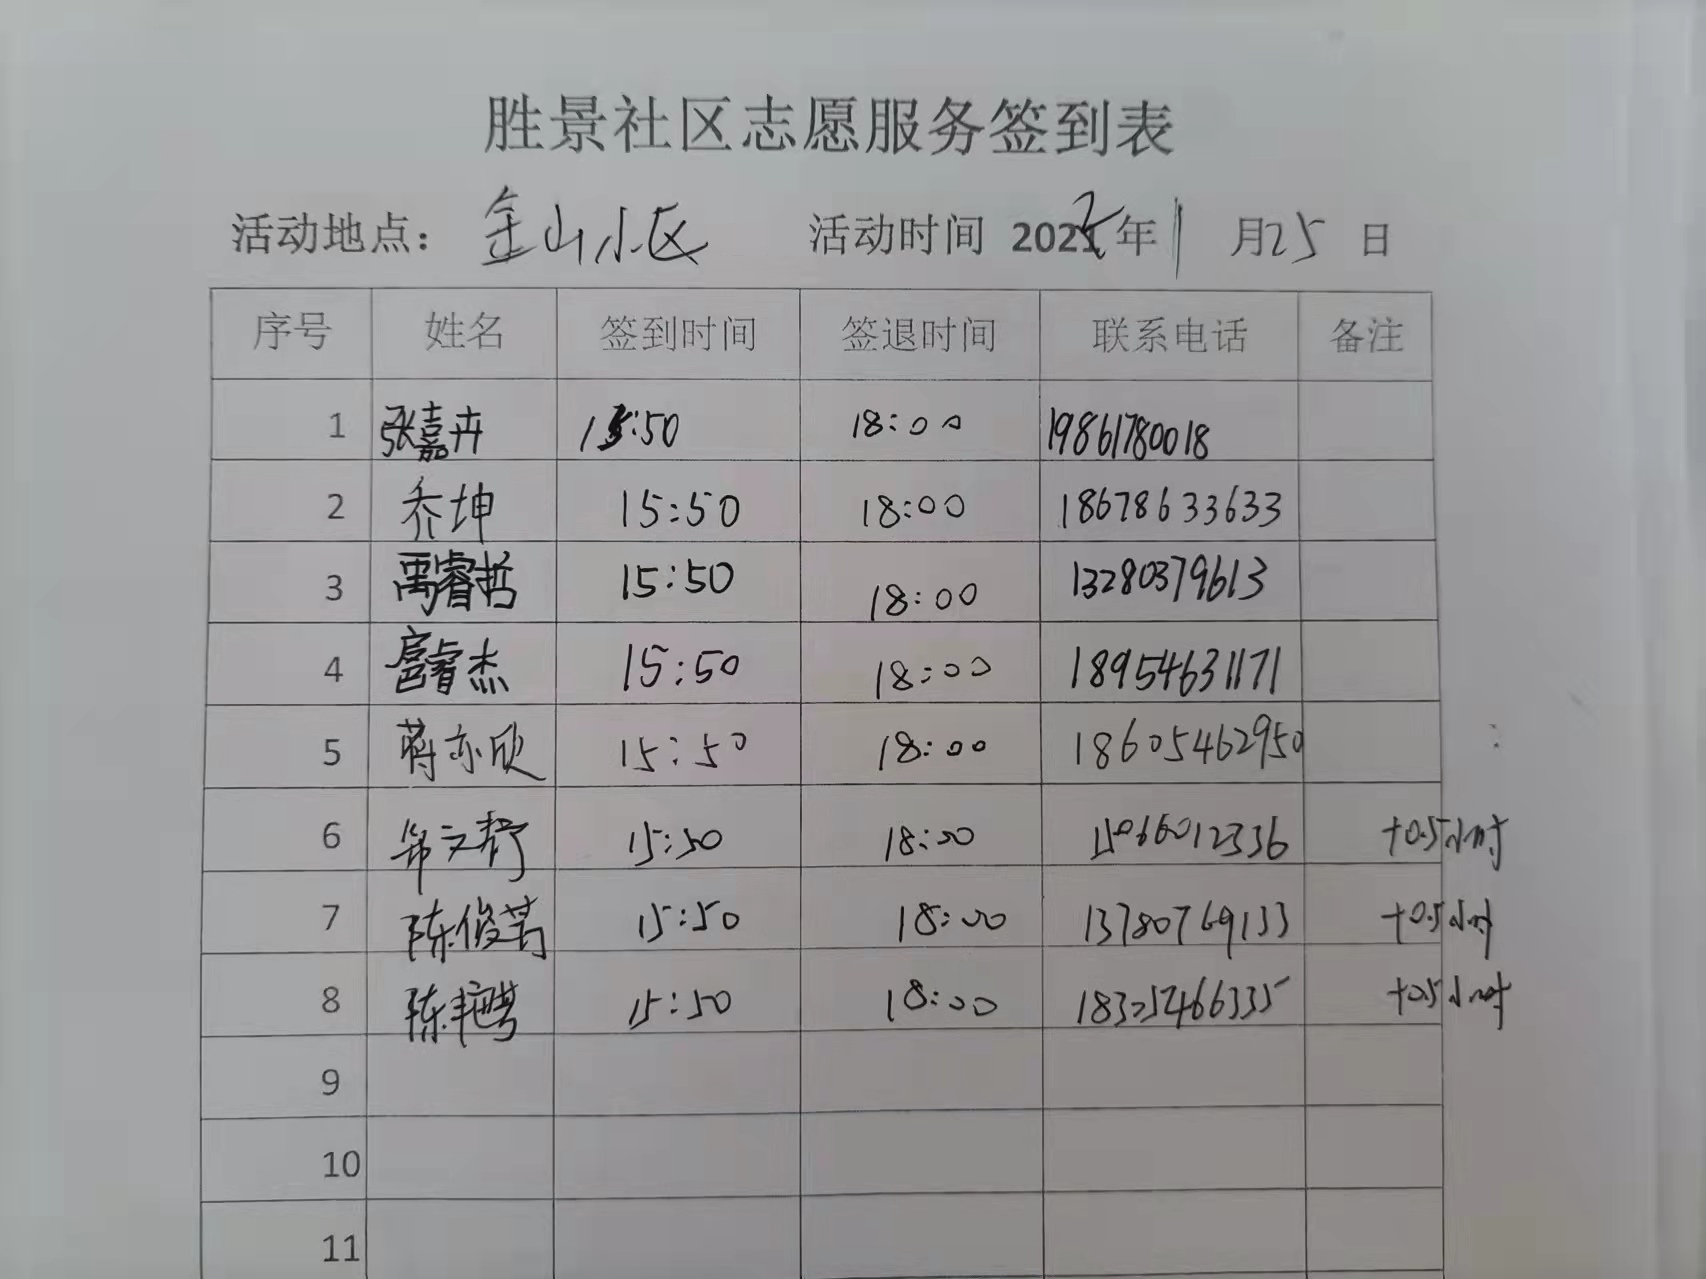 胜景社区志愿服务签到表
活动地点: 金山小区 活动时间 2022年1月25日
序号 姓名 签到时间 签退时间 联系电话 备注
1 张嘉卉 15:50 18:00 19861780018
2 乔坤 15:50 18:00 18678633633
3 禹睿哲 15:50 18:00 13280379613
4 扈睿杰 15:50 18:00 18954631171
5 蒋亦欣 15:50 18:00 18605462950
6 15:50 18:00 15066012336 +0.5小时
7 陈俊菁 15:50 18:00 13780769133 +0.5小时
8 陈 15:50 18:00 18325466335 +0.5小时
9
10
11